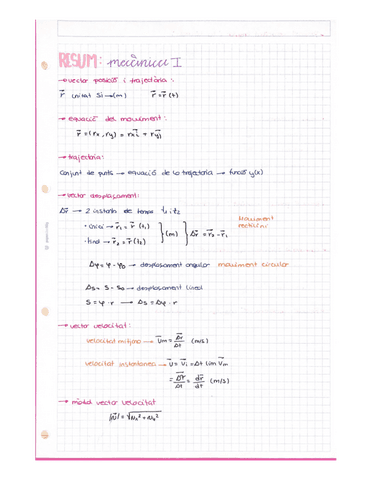 RESUM: mecànica I
→ vector posició i trajectòria :
r⃗ unitat SI → (m)   r⃗ = r⃗ (t)
→ equació del moviment :
r⃗ = (rx, ry) = rxî + ryĵ
→ trajectòria:
Conjunt de punts → equació de la trajectòria → funció y(x)
→ vector desplaçament:
Δr⃗ → 2 instants de temps t₁ i t₂
· inicial → r⃗₁ = r⃗ (t₁)
· final → r⃗₂ = r⃗ (t₂)
(m)   Δr⃗ = r⃗₂ - r⃗₁
Moviment rectilini
Δφ = φ - φ₀ → desplaçament angular   moviment circular
Δs = s - s₀ → desplaçament lineal
S = φ · r → Δs = Δφ · r
→ vector velocitat :
velocitat mitjana → v⃗m = Δr⃗/Δt (m/s)
velocitat instantànea → v⃗ = v⃗i = Δt lim v⃗m
= Δr⃗/Δt = dr⃗/dt (m/s)
→ mòdul vector velocitat
|v⃗| = √vx² + vy²